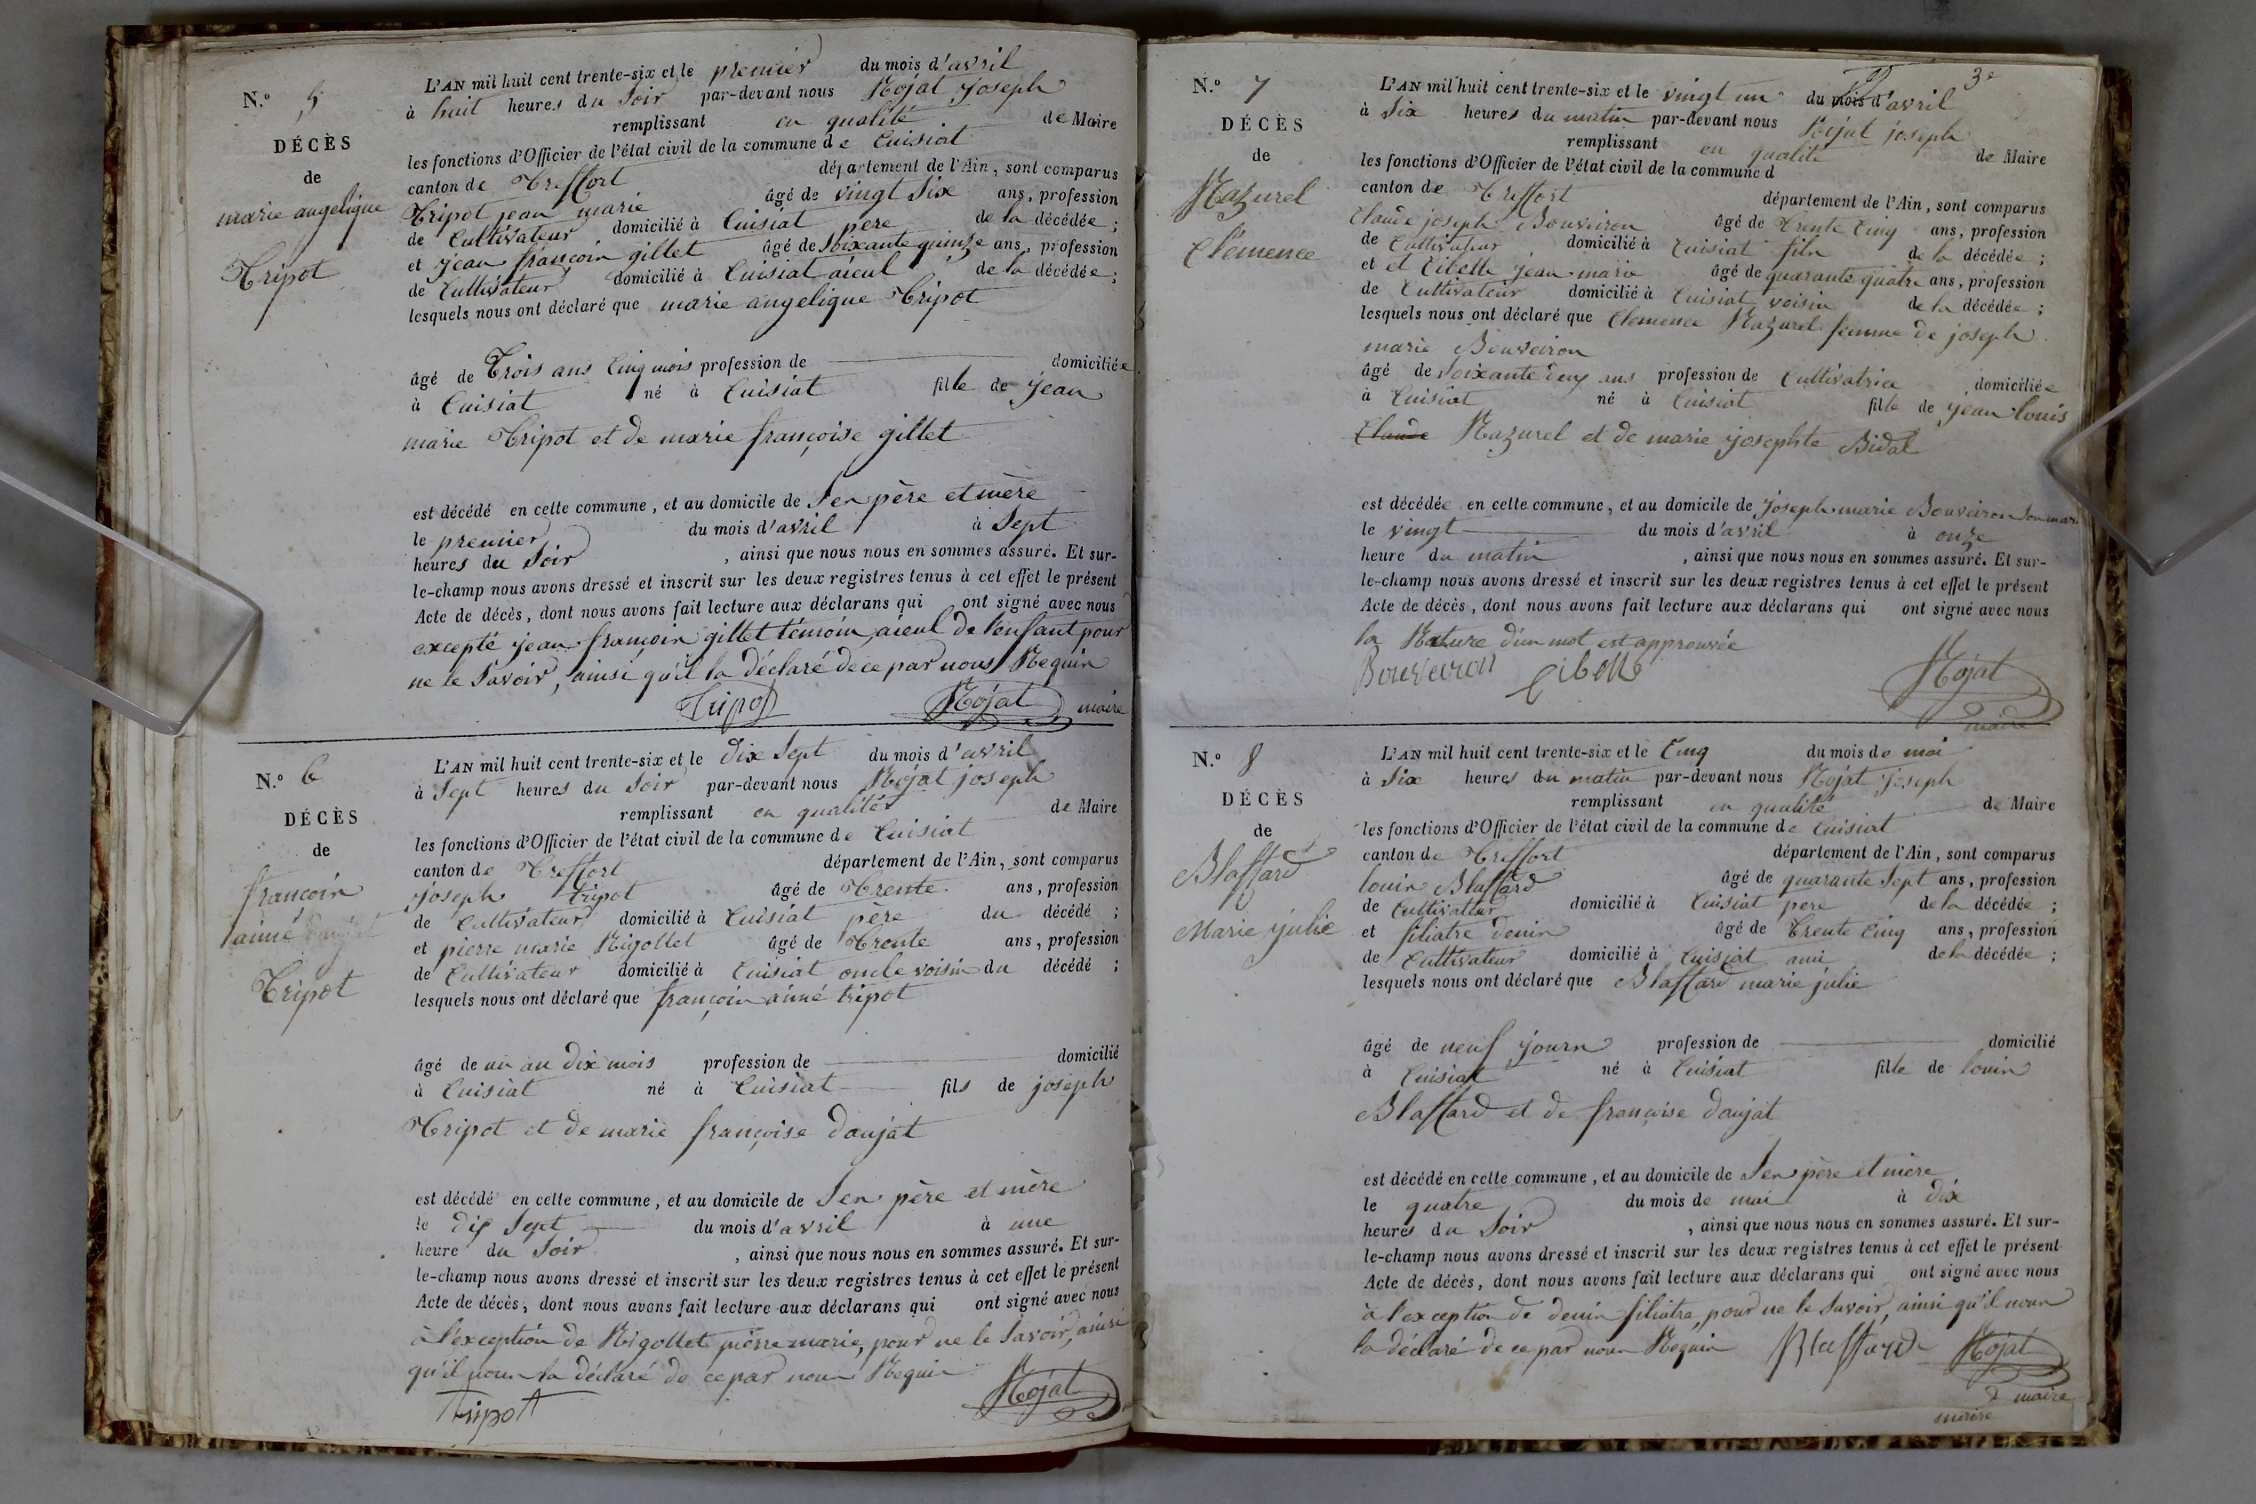 N.º 5
DÉCÈS
de
marie angelique
Tripot
L'AN mil huit cent trente-six et le premier du mois d'avril
à huit heures du Soir par-devant nous Rojat Joseph
remplissant en qualité de Maire
les fonctions d'Officier de l'état civil de la commune de Cuisiat
canton de Treffort département de l'Ain, sont comparus
Tripot jean marie âgé de vingt Six ans, profession
de Cultivateur domicilié à Cuisiat pere de la décédée ;
et jean françois gillet âgé de soixante quinze ans, profession
de Cultivateur domicilié à Cuisiat aïeul de la décédée ;
lesquels nous ont déclaré que marie angelique Tripot
âgé de Trois ans Cinq mois profession de domiciliée
à Cuisiat né à Cuisiat fille de jean
marie Tripot et de marie françoise gillet
est décédé en cette commune, et au domicile de Ses père et mère
le premier du mois d'avril à Sept
heures du Soir , ainsi que nous nous en sommes assuré. Et sur-
le-champ nous avons dressé et inscrit sur les deux registres tenus à cet effet le présent
Acte de décès, dont nous avons fait lecture aux déclarans qui ont signé avec nous
excepté jean françois gillet témoin, aïeul de l'enfant pour
ne le Savoir, ainsi qu'il la déclaré de ce par nous Requis
Tripot Rojat maire
N.º 6
DÉCÈS
de
françois
aimé
Tripot
L'AN mil huit cent trente-six et le dix Sept du mois d'avril
à Sept heures du Soir par-devant nous Rojat joseph
remplissant en qualité de Maire
les fonctions d'Officier de l'état civil de la commune de Cuisiat
canton de Treffort département de l'Ain, sont comparus
joseph tripot âgé de Trente ans, profession
de Cultivateur domicilié à Cuisiat père du décédé ;
et pierre marie Rigollet âgé de Trente ans, profession
de Cultivateur domicilié à Cuisiat oncle voisin du décédé ;
lesquels nous ont déclaré que françois aimé tripot
âgé de un an dix mois profession de domicilié
à Cuisiat né à Cuisiat fils de joseph
Tripot et de marie françoise daujat
est décédé en cette commune, et au domicile de Ses père et mère
le dix Sept du mois d'avril à une
heure du Soir , ainsi que nous nous en sommes assuré. Et sur-
le-champ nous avons dressé et inscrit sur les deux registres tenus à cet effet le présent
Acte de décès, dont nous avons fait lecture aux déclarans qui ont signé avec nous
à l'exception de Rigollet pierre marie, pour ne le Savoir, ainsi
qu'il nous la déclaré de ce par nous Requis
Tripot Rojat
3e
N.º 7
DÉCÈS
de
Mazurel
Clémence
L'AN mil huit cent trente-six et le vingt un du mois d'avril
à Six heures du matin par-devant nous Rojat joseph
remplissant en qualité de Maire
les fonctions d'Officier de l'état civil de la commune d
canton de Treffort département de l'Ain, sont comparus
Claude joseph Bouveiron âgé de Trente Cinq ans, profession
de Cultivateur domicilié à Cuisiat fils de la décédée ;
et et Cibelle jean marie âgé de quarante quatre ans, profession
de Cultivateur domicilié à Cuisiat voisin de la décédée ;
lesquels nous ont déclaré que Clemence Mazurel femme de joseph
marie Bouveiron
âgé de soixante deux ans profession de Cultivatrice domiciliée
à Cuisiat né à Cuisiat fille de jean louis
Claude Mazurel et de marie josephte Bidal
est décédée en cette commune, et au domicile de joseph marie Bouveiron Son mari
le vingt du mois d'avril à onze
heure du matin , ainsi que nous nous en sommes assuré. Et sur-
le-champ nous avons dressé et inscrit sur les deux registres tenus à cet effet le présent
Acte de décès, dont nous avons fait lecture aux déclarans qui ont signé avec nous
la Rature d'un mot est approuvée
Bouveiron Cibelle Rojat
maire
N.º 8
DÉCÈS
de
Blaffard
Marie julie
L'AN mil huit cent trente-six et le Cinq du mois de mai
à Six heures du matin par-devant nous Rojat joseph
remplissant en qualité de Maire
les fonctions d'Officier de l'état civil de la commune de Cuisiat
canton de Treffort département de l'Ain, sont comparus
louis Blaffard âgé de quarante Sept ans, profession
de Cultivateur domicilié à Cuisiat pere de la décédée ;
et filiatre denis âgé de Trente Cinq ans, profession
de Cultivateur domicilié à Cuisiat ami de la décédée ;
lesquels nous ont déclaré que Blaffard marie julie
âgé de neuf jours profession de domicilié
à Cuisiat né à Cuisiat fille de louis
Blaffard et de françoise daujat
est décédé en cette commune, et au domicile de Ses père et mère
le quatre du mois de mai à dix
heures du Soir , ainsi que nous nous en sommes assuré. Et sur-
le-champ nous avons dressé et inscrit sur les deux registres tenus à cet effet le présent
Acte de décès, dont nous avons fait lecture aux déclarans qui ont signé avec nous
à l'exception de denis filiatre, pour ne le Savoir, ainsi qu'il nous
la déclaré de ce par nous Requis Blaffard Rojat
maire
maire